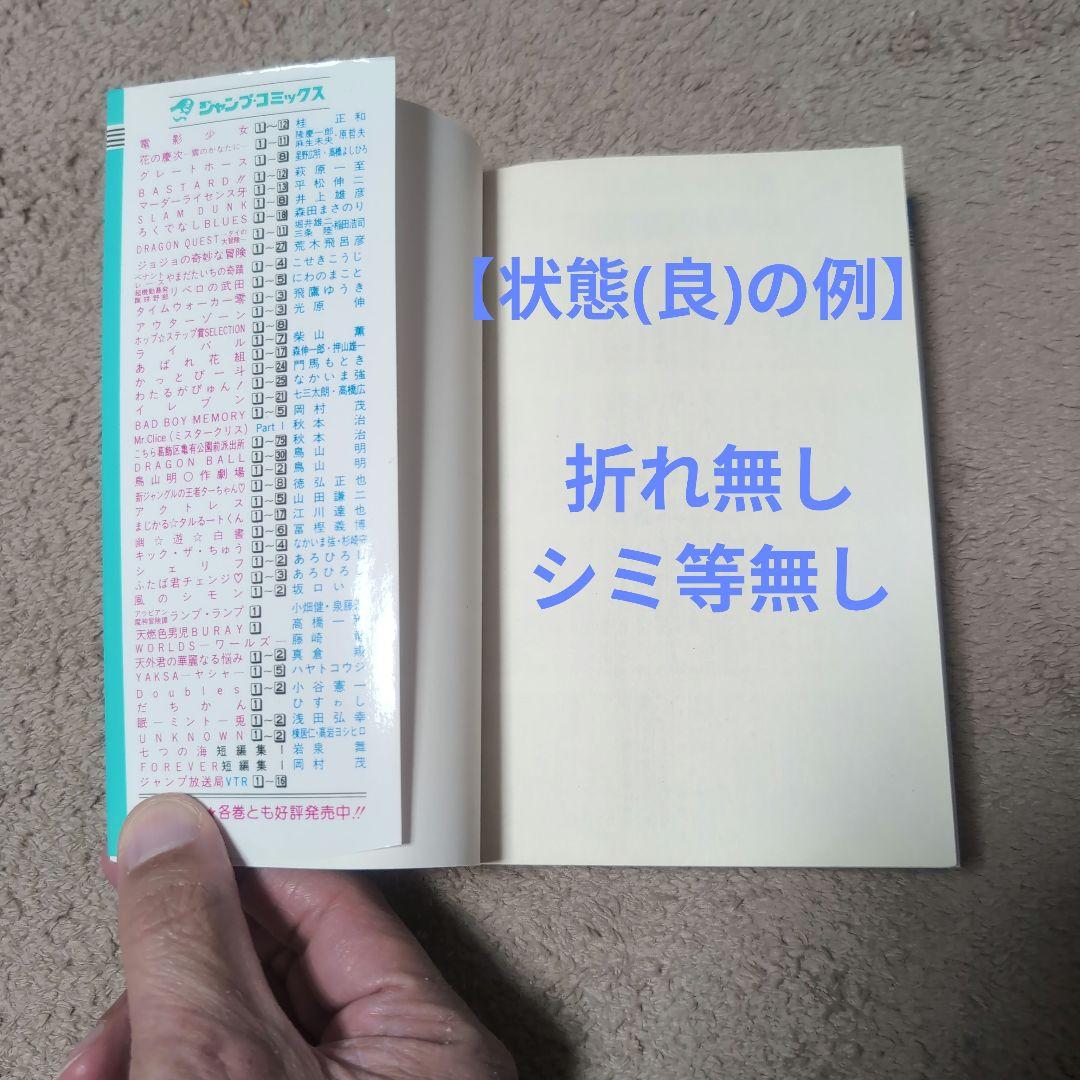 ジャンプ・コミックス
電影少女 1~12 桂正和
花の慶次―雲のかなたに― 1~11 隆慶一郎・原哲夫 麻生未央
グレートホース 1~8 星野広明・高橋よしひろ
BASTARD!! 1~12 萩原一至
マーダーライセンス牙 1~13 平松伸二
SLAM DUNK 1~9 井上雄彦
ろくでなしBLUES 1~18 森田まさのり
DRAGON QUEST―ダイの大冒険― 1~11 堀井雄二 三条陸 稲田浩司
ジョジョの奇妙な冒険 1~27 荒木飛呂彦
ペナントレース やまだたいちの奇蹟 1~4 こせきこうじ
超機動暴発蹴球野郎 リベロの武田 1~5 にわのまこと
タイムウォーカー零 1~3 飛鷹ゆうき
アウターゾーン 1~3 光原伸
ホップ☆ステップ賞SELECTION 1~8
ライバル 1~14 柴山薫
あばれ花組 1~17 森伸一郎・押山雄一
かっとび一斗 1~24 門馬もとき
わたるがぴゅん! 1~25 なかいま強
イレブン 1~21 七三太朗・高橋広
BAD BOY MEMORY 1~5 岡村茂
Mr.Clice(ミスタークリス) Part I 秋本治
こちら葛飾区亀有公園前派出所 1~75 秋本治
DRAGON BALL 1~30 鳥山明
鳥山明○作劇場 1~2 鳥山明
新ジャングルの王者ターちゃん♡ 1~8 徳弘正也
アクトレス 1~5 山田謙二
まじかる☆タルるートくん 1~17 江川達也
幽☆遊☆白書 1~6 冨樫義博
キック・ザ・ちゅう 1~4 なかいま強・杉崎守
シェリフ 1~2 あろひろし
ふたば君チェンジ♡ 1~3 あろひろ
風のシモン 1~2 坂口い
アラビアン魔神冒険譚 ランプ・ランプ 1 小畑健・泉藤
天燃色男児BURAY 1 高橋一
WORLDS―ワールズ― 藤崎
天外君の華麗なる悩み 1~2 真倉翔
YAKSA―ヤシャ― 1~5 ハヤトコウジ
Doubles 1~2 小谷憲一
だちかん 1 ひすゎし
眠―ミント―兎 1~2 浅田弘幸
UNKNOWN 1~2 棟居仁・高岩ヨシヒロ
七つの海 短編集 I 岩泉舞
FOREVER 短編集 I 岡村茂
ジャンプ放送局VTR 1~16
★各巻とも好評発売中!!
【状態(良)の例】
折れ無し
シミ等無し